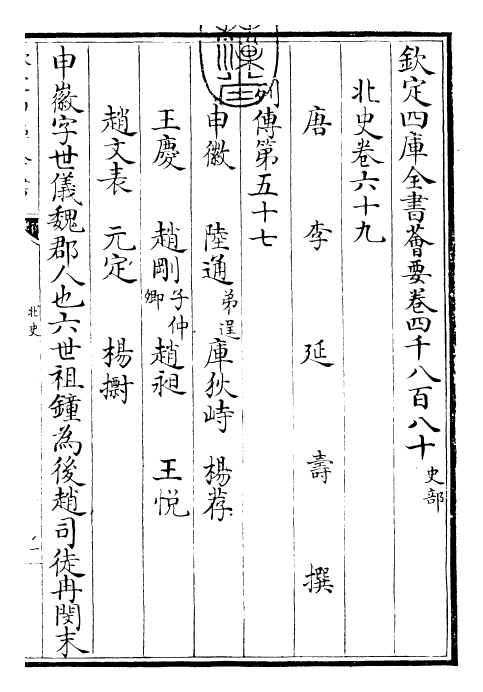 欽定四庫全書薈要卷四千八百八十 史部
北史卷六十九
唐 李 延 壽 撰
列傳第五十七
申徽 陸通 弟逞 庫狄峙 楊荐
王慶 趙剛 子仲卿 趙昶 王悦
趙文表 元定 楊𢷋
申徽字世儀魏郡人也六世祖鐘為後趙司徒冉閔末
北史